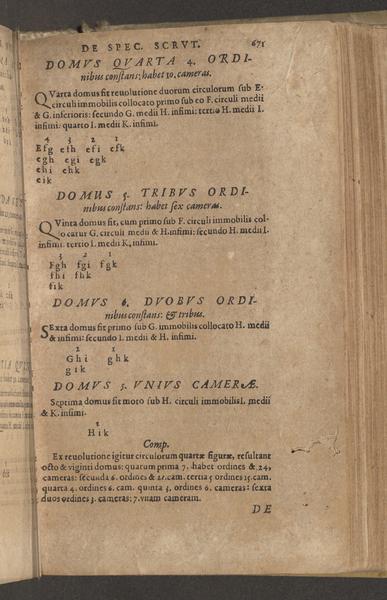 DE SPEC. SCRVT. 671
DOMVS QVARTA 4. ORDI-
nibus constans: habet 10. cameras.
QVarta domus fit reuolutione duorum circulorum sub E.
circuli immobilis collocato primo sub eo F. circuli medii
& G. inferioris: secundo G. medii H. infimi: tertio H. medii I.
infimi: quarto I. medii K. infimi.
4 3 2 1
Efg efh efi efk
egh egi egk
ehi ehk
eik
DOMVS 5. TRIBVS ORDI-
nibus constans: habet sex cameras.
QVinta domus fit, cum primo sub F. circuli immobilis col-
locatur G. circuli medii & H. infimi: secundo H. medii I.
infimi: tertio I. medii K, infimi.
3 2 1
Fgh fgi fgk
fhi fhk
fik
DOMVS 6. DVOBVS ORDI-
nibus constans: & tribus.
SExta domus fit primo sub G. immobilis collocato H. medii
& infimi: secundo I. medii & H. infimi.
2 1
Ghi ghk
gik
DOMVS 5. VNIVS CAMERÆ.
Septima domus fit moto sub H. circuli immobilis I. medii
& K. infimi.
1
Hik
Comp.
Ex reuolutione igitur circulorum quartæ figuræ, resultant
octo & viginti domus: quarum prima 7. habet ordines & 24,
cameras: secunda 6. ordines & 21. cam. tertia 5 ordines 15. cam.
quarta 4. ordines 6. cam. quinta 3. ordines 6. cameras: sexta
duos ordines 3. cameras: 7. vnam cameram.
DE